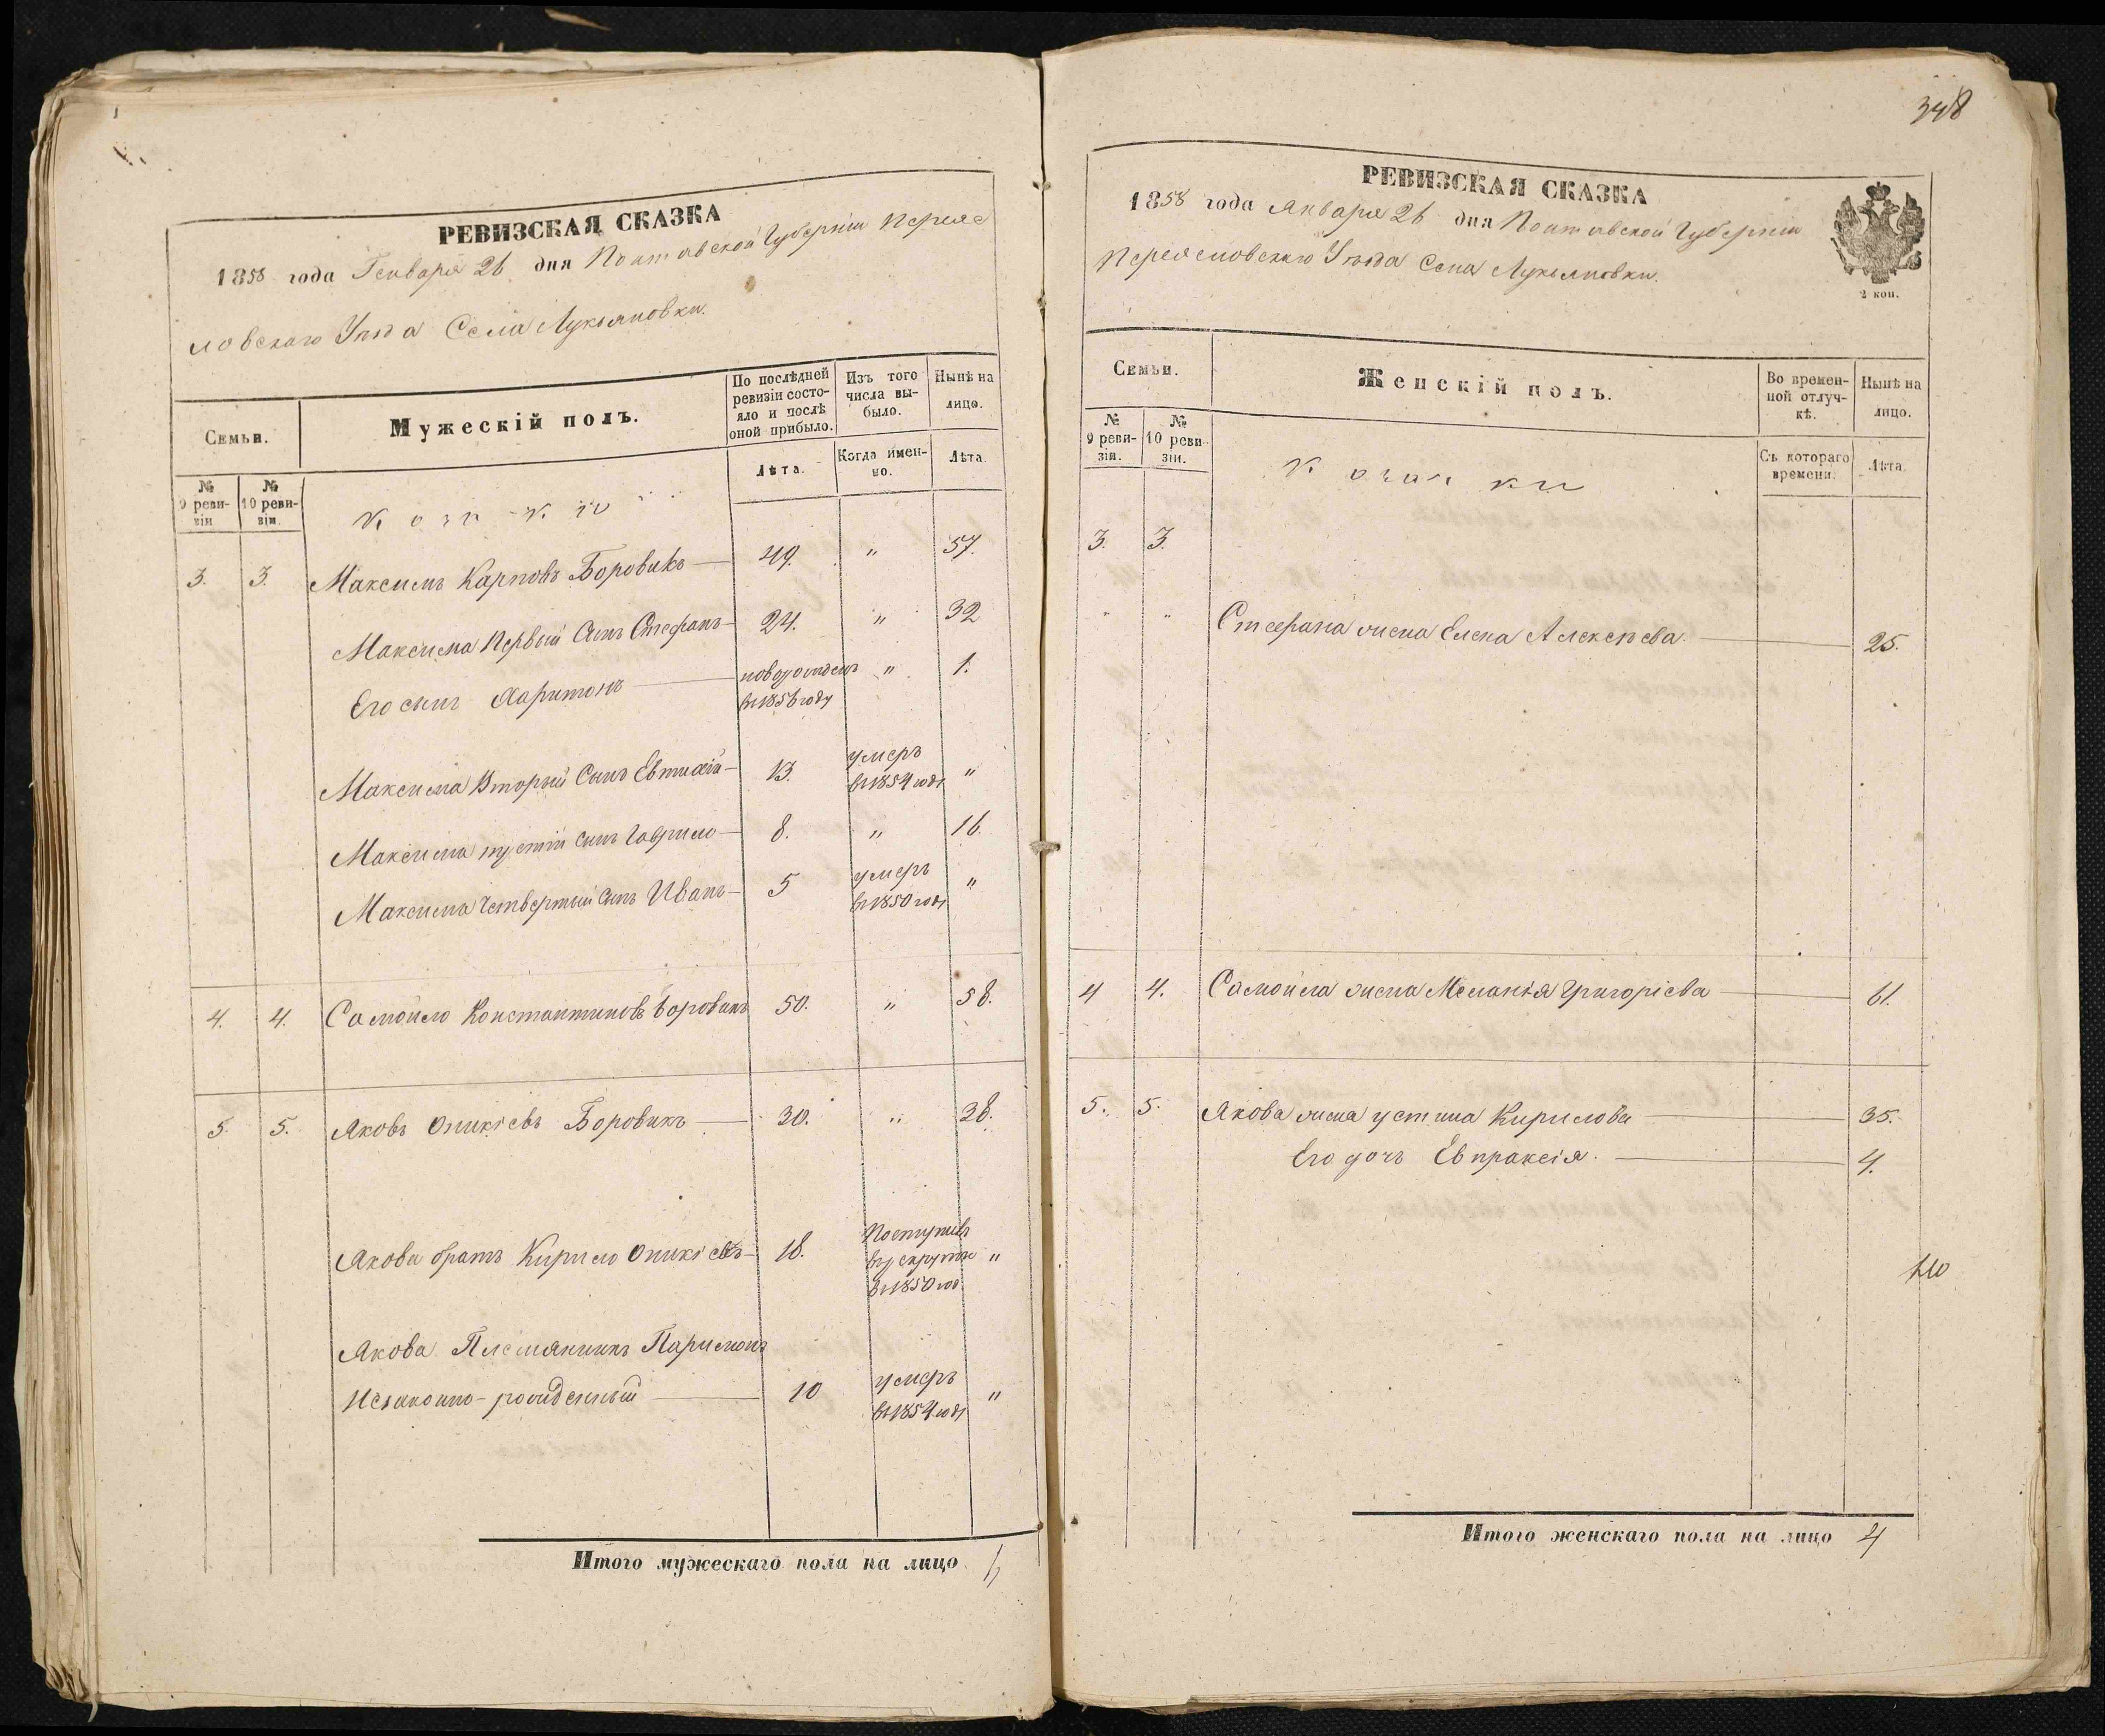 РЕВИЗСКАЯ СКАЗКА
1858 года Генваря 26 дня Полтавской Губерніи Переяс
ловскаго Уѣзда Села Лукьяновки.
Семьи.
Мужескій полъ.
По послѣдней ревизіи состояло и послѣ оной прибыло.
Изъ того числа выбыло.
Нынѣ на лицо.
№ 9 ревизіи
№ 10 ревизіи.
Лѣта.
Когда именно.
Лѣта.
Козаки
3. 3. Максимъ Карповъ Боровикъ 49. " 57.
Максима Первый Сынъ Стефанъ 24. " 32
Его сынъ Харитонъ новорожденъ " 1.
въ 1856 году
Максима Вторый Сынъ Евтихій 13. умеръ "
въ 1854 году
Максима третій сынъ Гаврило 8. " 16.
Максима Четвертый Сынъ Иванъ 5 умеръ "
въ 1850 году
4. 4. Самойло Константиновъ Боровикъ 50. " 58.
5. 5. Яковъ Оникіевъ Боровикъ 30. " 38.
Якова братъ Кирило Оникіевъ 18. Поступилъ
въ рекруты "
въ 1850 год.
Якова Племянникъ Паримонъ
Незаконно-рожденный 10 умеръ "
въ 1854 году
Итого мужескаго пола на лицо
348
РЕВИЗСКАЯ СКАЗКА
1858 года Января 26 дня Полтавской Губерніи
Переясловскаго Уѣзда Села Лукьяновки.
2 коп.
Семьи.
Женскій полъ.
Во временной отлучкѣ.
Нынѣ на лицо.
№ 9 ревизіи.
№ 10 ревизіи.
Съ котораго времени.
Лѣта.
Козачки
3. 3.
" " Стефана жена Елена Алексѣева. 25.
4 4. Самойла жена Меланія Григоріева 61.
5. 5. Якова жена Устина Кирилова 35.
Его дочь Евпраксія. 4.
Итого женскаго пола на лицо 4